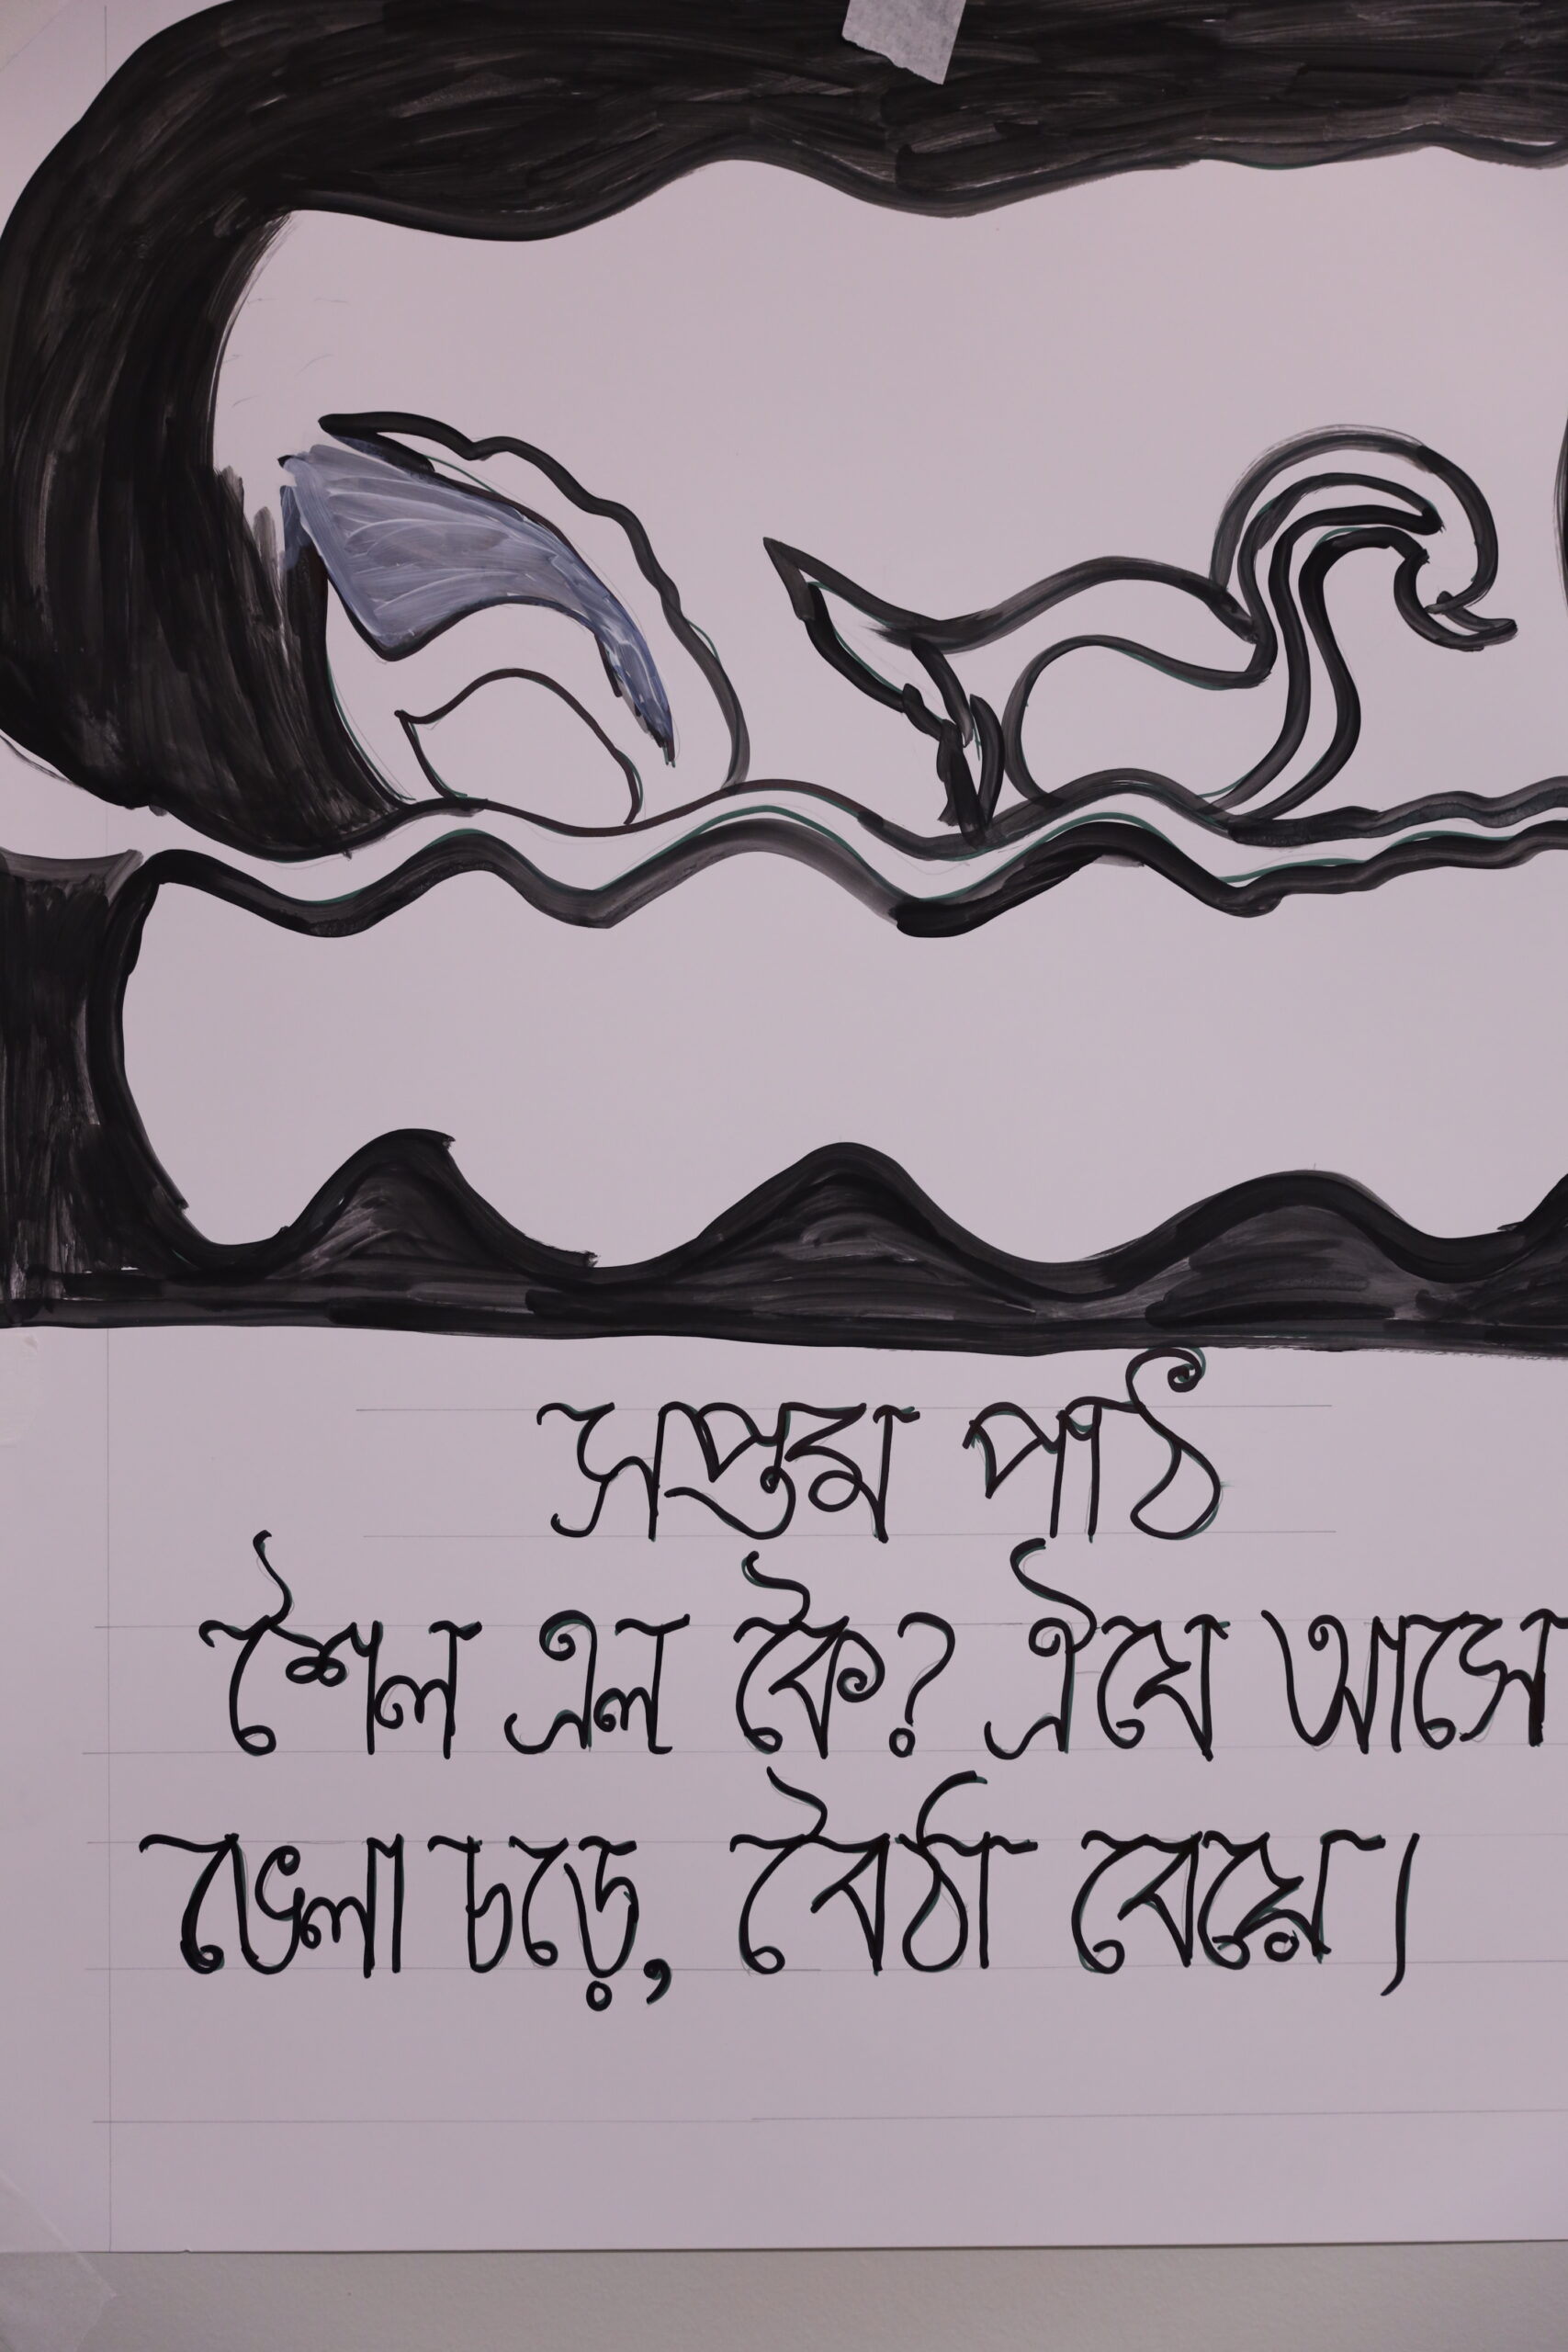 সপ্তম পাঠ
শৈল এল কৈ? ঐযে আসে
ভেলা চড়ে, বৈঠা বেয়ে।